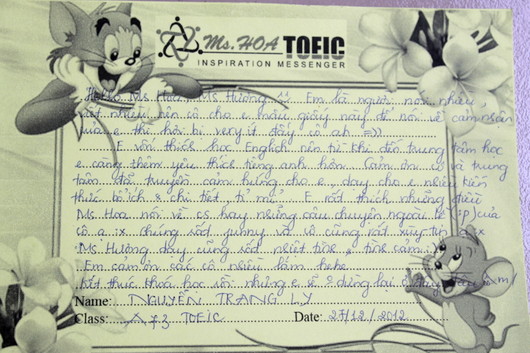 Ms. HOA TOEIC
INSPIRATION MESSENGER
Hello Ms Hoa, Ms Hương ^^ Em là người nói nhiều
rất nhiều nên cô cho e mẩu giấy này để nói về cảm nhận
của e thì hơi bị very ít đấy cô ah =))
E vốn thích học English nên từ khi đến trung tâm học
e càng thêm yêu thích tiếng anh hơn. Cảm ơn cô và trung
tâm đã truyền cảm hứng cho e, dạy cho e nhiều kiến
thức bổ ích & chi tiết, tỉ mỉ. E rất thích những điều
Ms Hoa nói về cs hay những câu chuyện ngoài lề của
cô chúng rất funny và cô cũng rất
Ms Hương dạy cũng rất nhiệt tình & tình cảm
Em cảm ơn các cô nhiều lắm hehe
Kết thúc khoá học rồi nhưng e sẽ dừng lại ở
Name: NGUYỄN TRANG LY
Class: A73 TOEIC Date: 27/12/2012